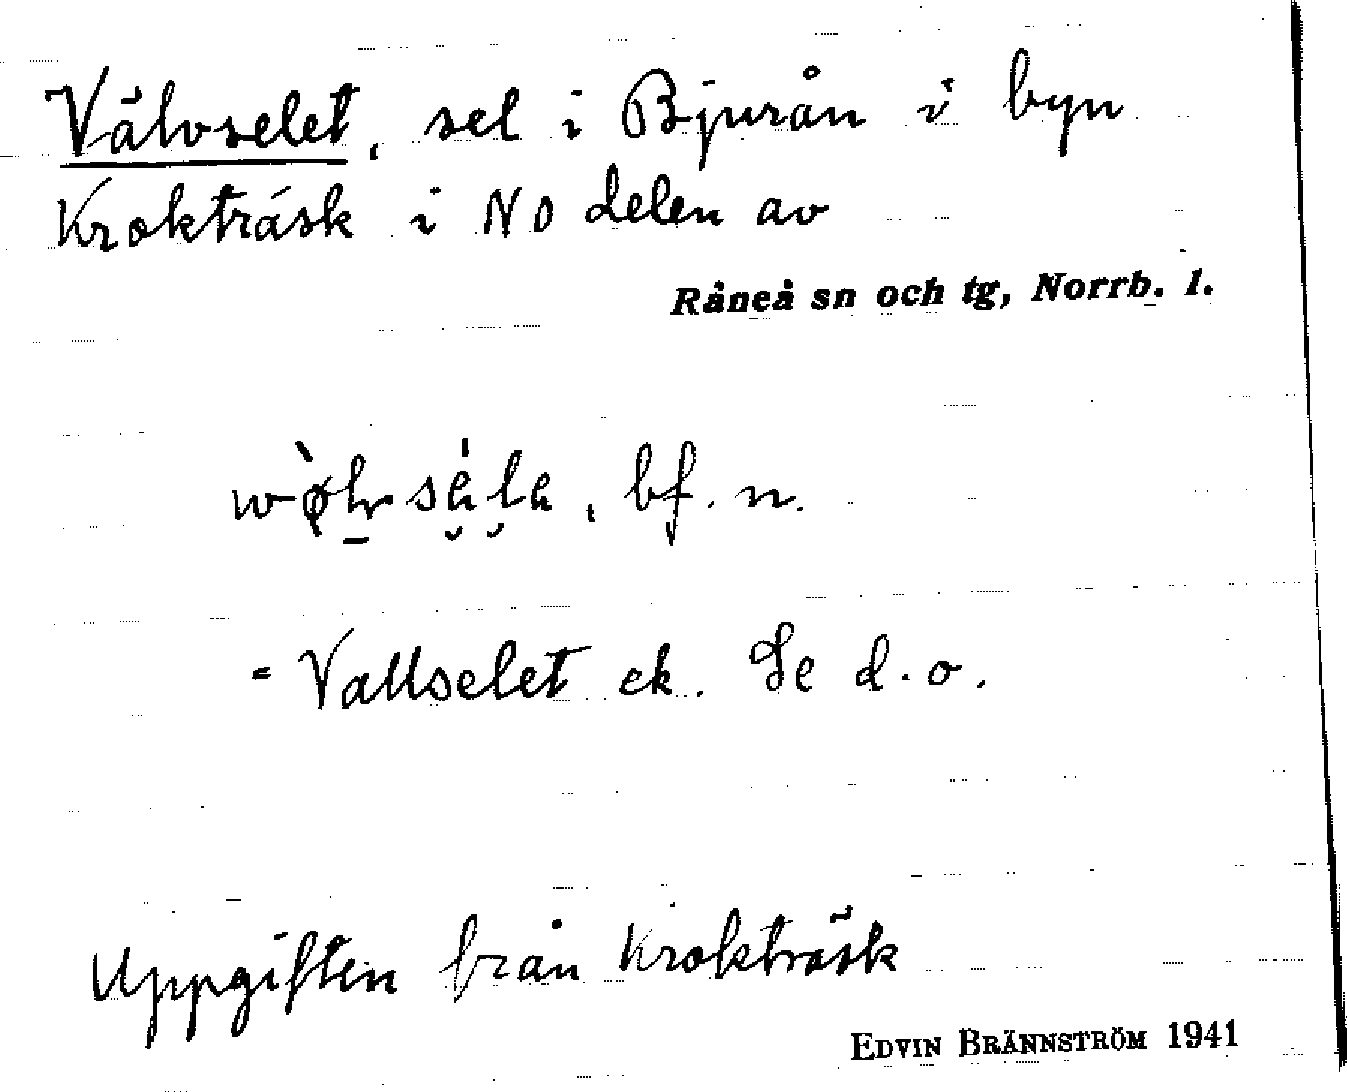 Välvselet, sel i Bjurån i byn
Krokträsk i NO delen av
Råneå sn och tg, Norrb. l.
bf. n.
= Vallselet ek. Se d. o.
Uppgiften från Krokträsk
EDVIN BRÄNNSTRÖM 1941